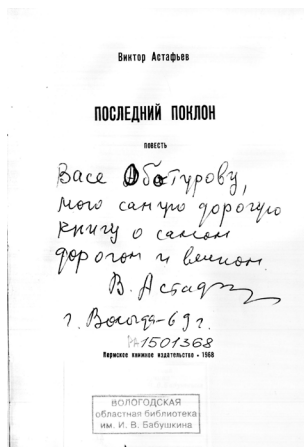 Виктор Астафьев
ПОСЛЕДНИЙ ПОКЛОН
ПОВЕСТЬ
Васе Оботурову,
мою самую дорогую
книгу о самом
дорогом и вечном.
В. Астафьев
г. Вологда-69 г.
1501368
Пермское книжное издательство • 1968
ВОЛОГОДСКАЯ
областная библиотека
им. И. В. Бабушкина